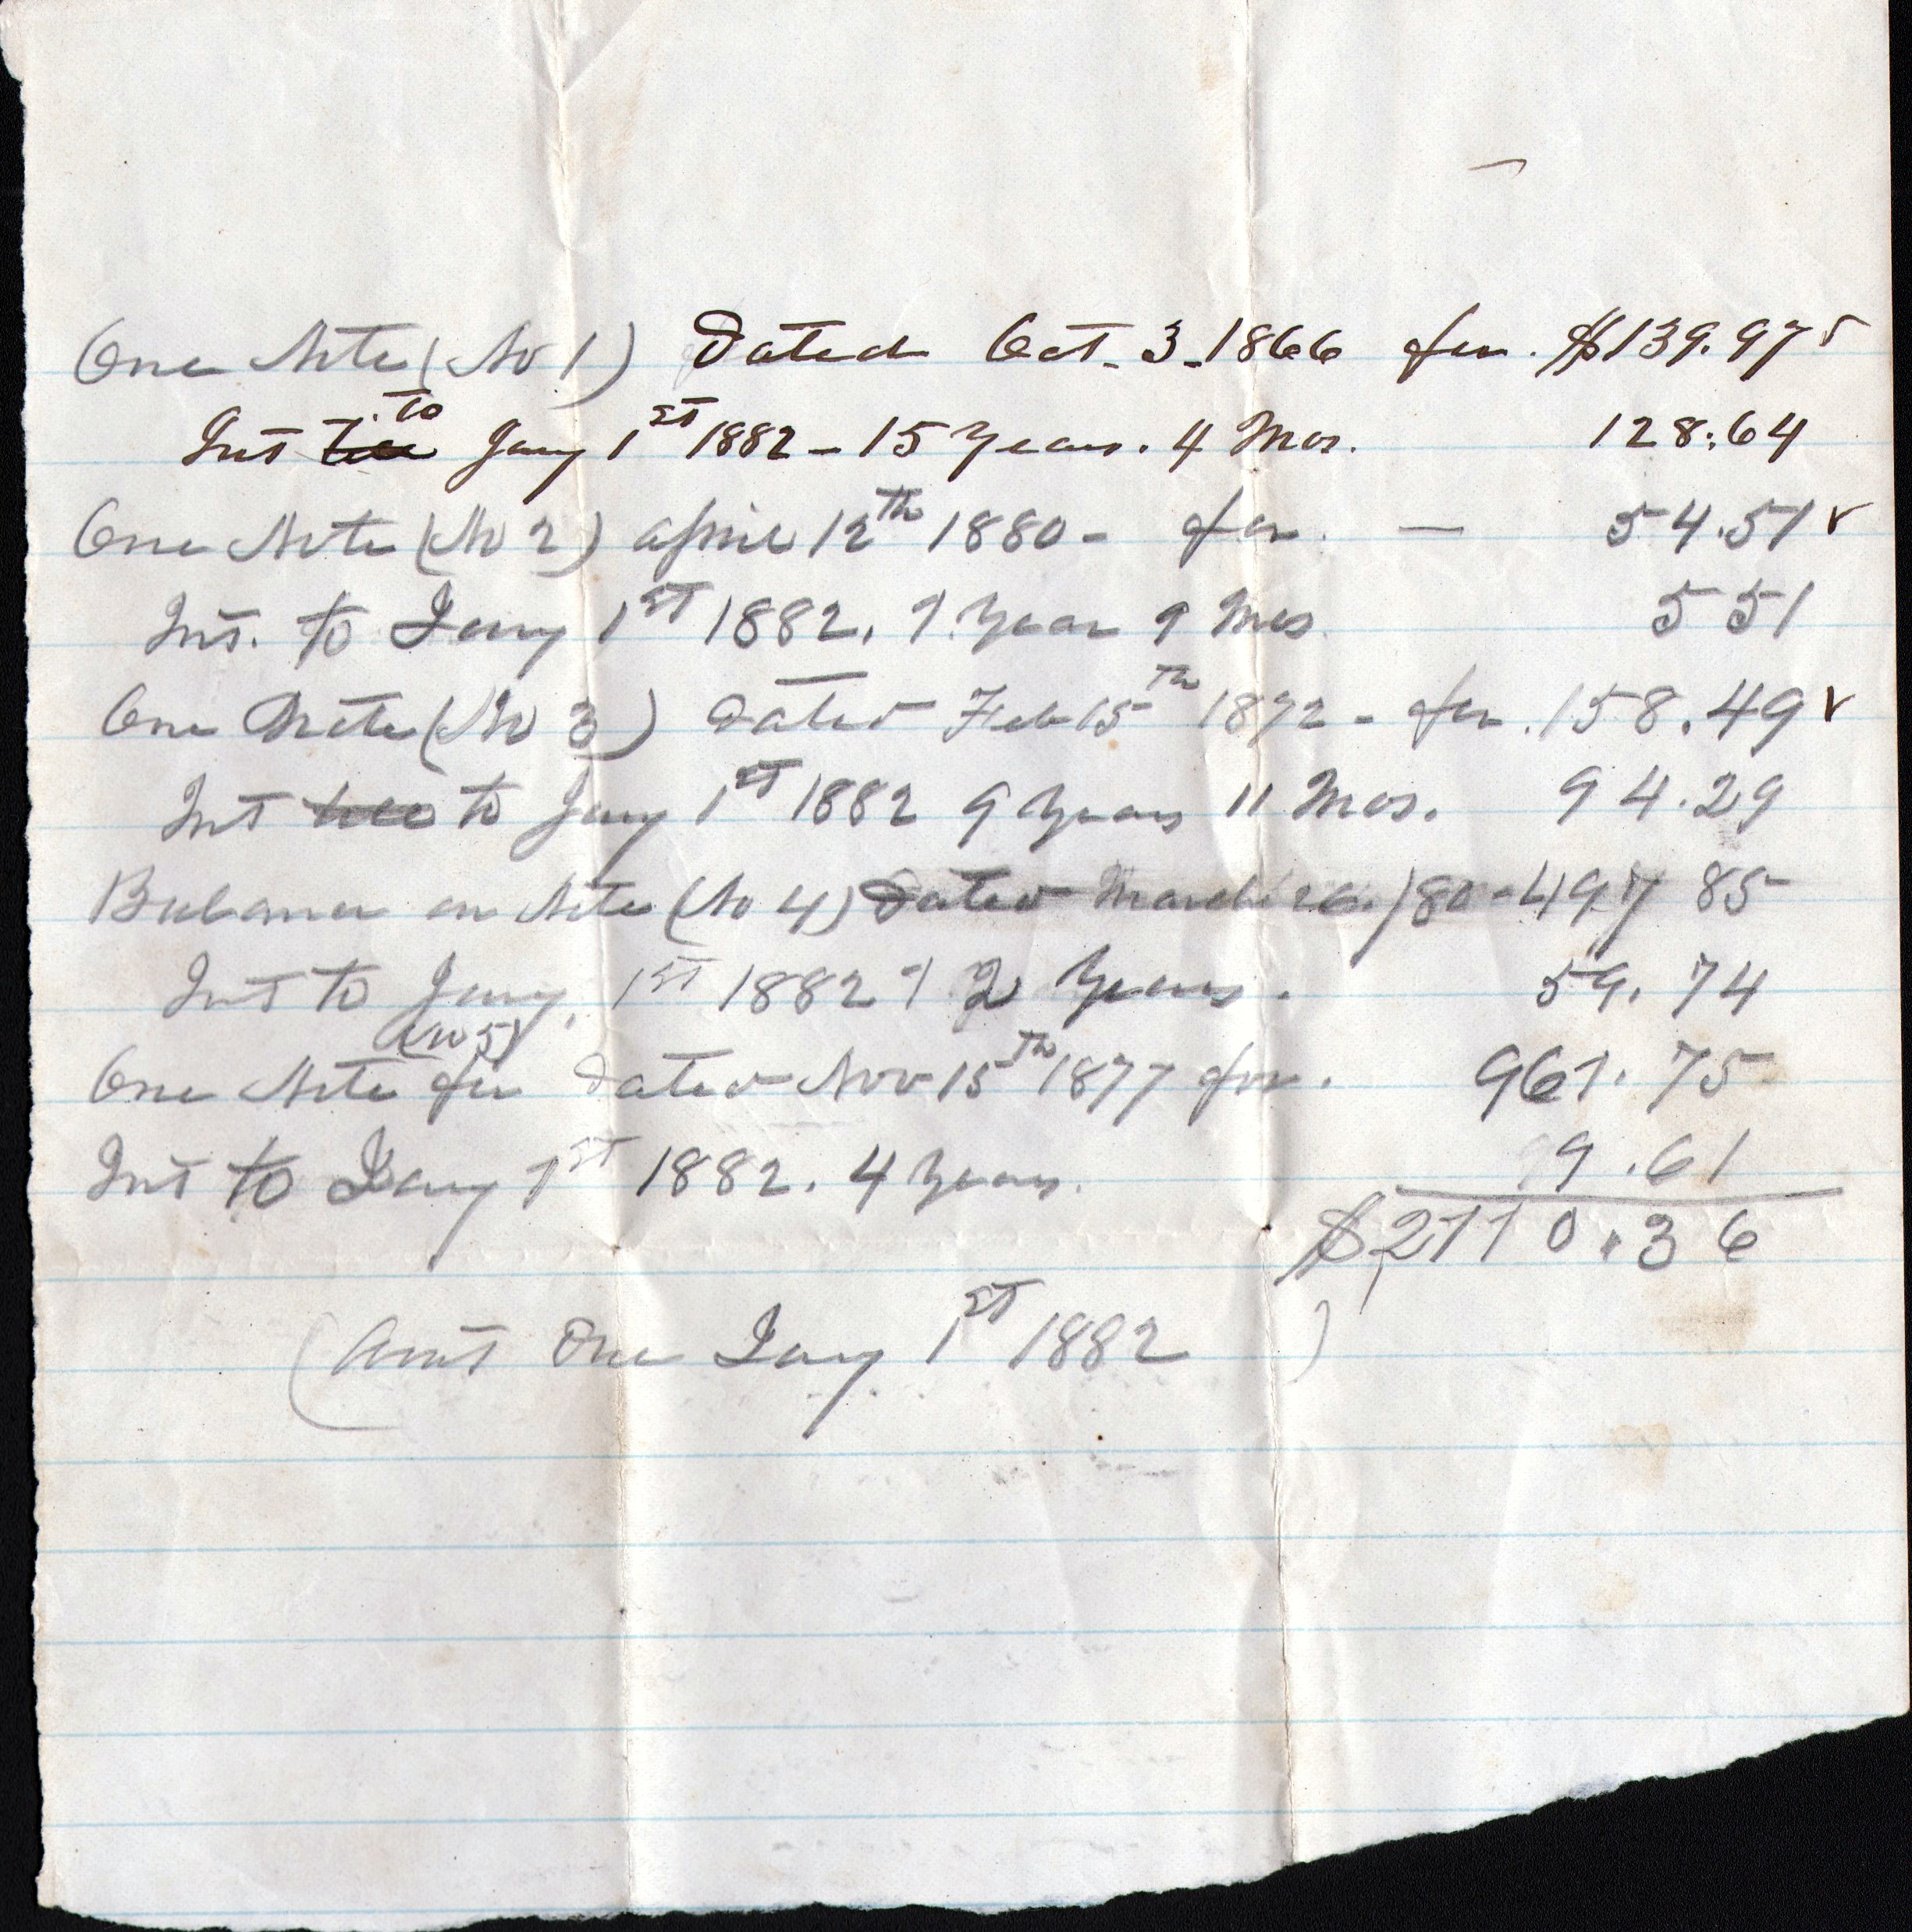 One Note (No 1) Dated Oct. 3. 1866 for. $139.97
to
Int till Jany 1st 1882 - 15 Years. 4 Mos. 128.64
One Note (No 2) April 12th 1880 - for. — 54.51
Int. to Jany 1st 1882. 1 Year 9 Mos 5 51
One Note (No 3) Dated Feb 15th 1872 - for. 158.49
Int till to Jany 1st 1882 9 Years 11 Mos. 94.29
Balance on Note (No 4) Dated March 26./80 - 497 85
Int to Jany. 1st 1882 2 Years. 59.74
(No 5)
One Note for Dated Nov 15th 1877 for. 961.75
Int to Jany 1st 1882. 4 Years. 9.61
$2110.36
(Amt Due Jany 1st 1882 )